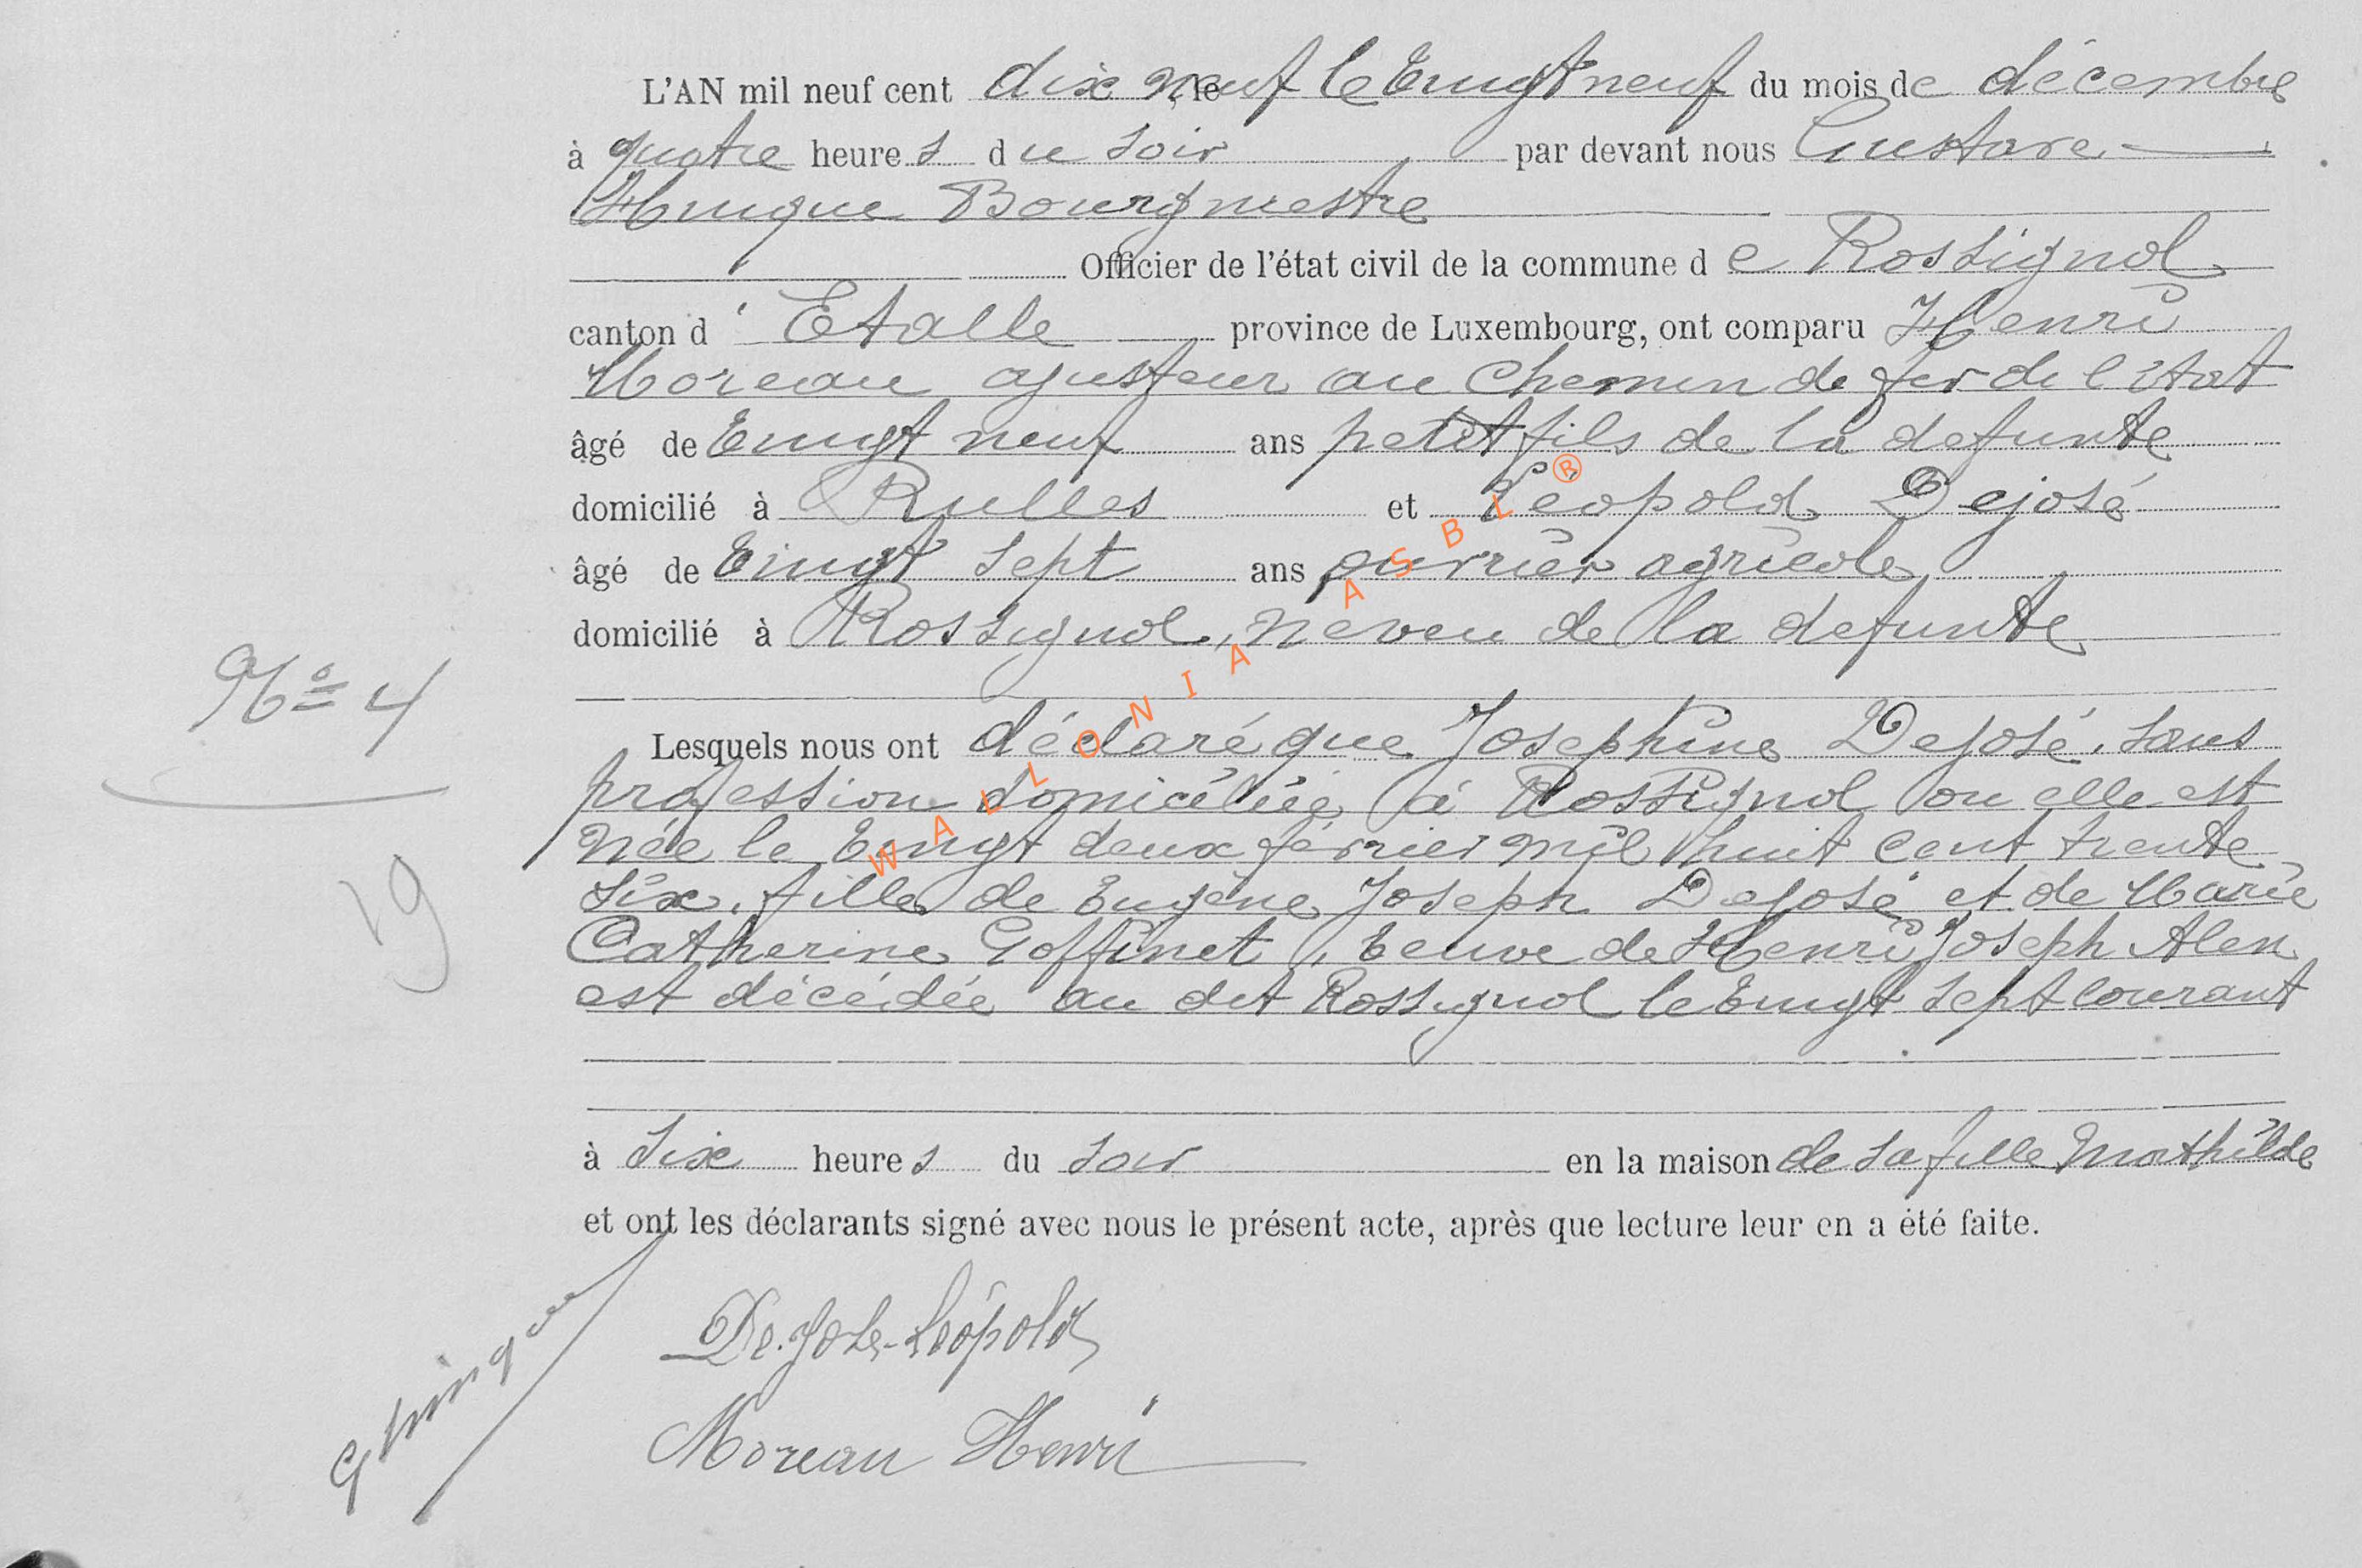 L'AN mil neuf cent dix neuf le vingt neuf du mois de décembre
à quatre heures du soir par devant nous Gustave
Hinque Bourgmestre
Officier de l'état civil de la commune de Rossignol
canton d'Etalle province de Luxembourg, ont comparu Henri
Moreau ajusteur au chemin de fer de l'état
âgé de vingt neuf ans petit fils de la defunte
domicilié à Rulles et Léopold Dejosé
âgé de vingt sept ans ouvrier agricole
domicilié à Rossignol, neveu de la defunte
Nº 4
Lesquels nous ont déclaré que Josephine Dejosé, sans
profession domiciliée à Rossignol ou elle est
née le vingt deux février mil huit cent trente
six, fille de Eugène Joseph Dejosé et de Marie
19
Catherine Goffinet, veuve de Henri Joseph Alen
est décédée au dit Rossignol le vingt sept courant
à six heures du soir en la maison de sa fille Mathilde
et ont les déclarants signé avec nous le présent acte, après que lecture leur en a été faite.
G Hinque
De.José-Léopold
Moreau Henri
WALLONIA ASBL®